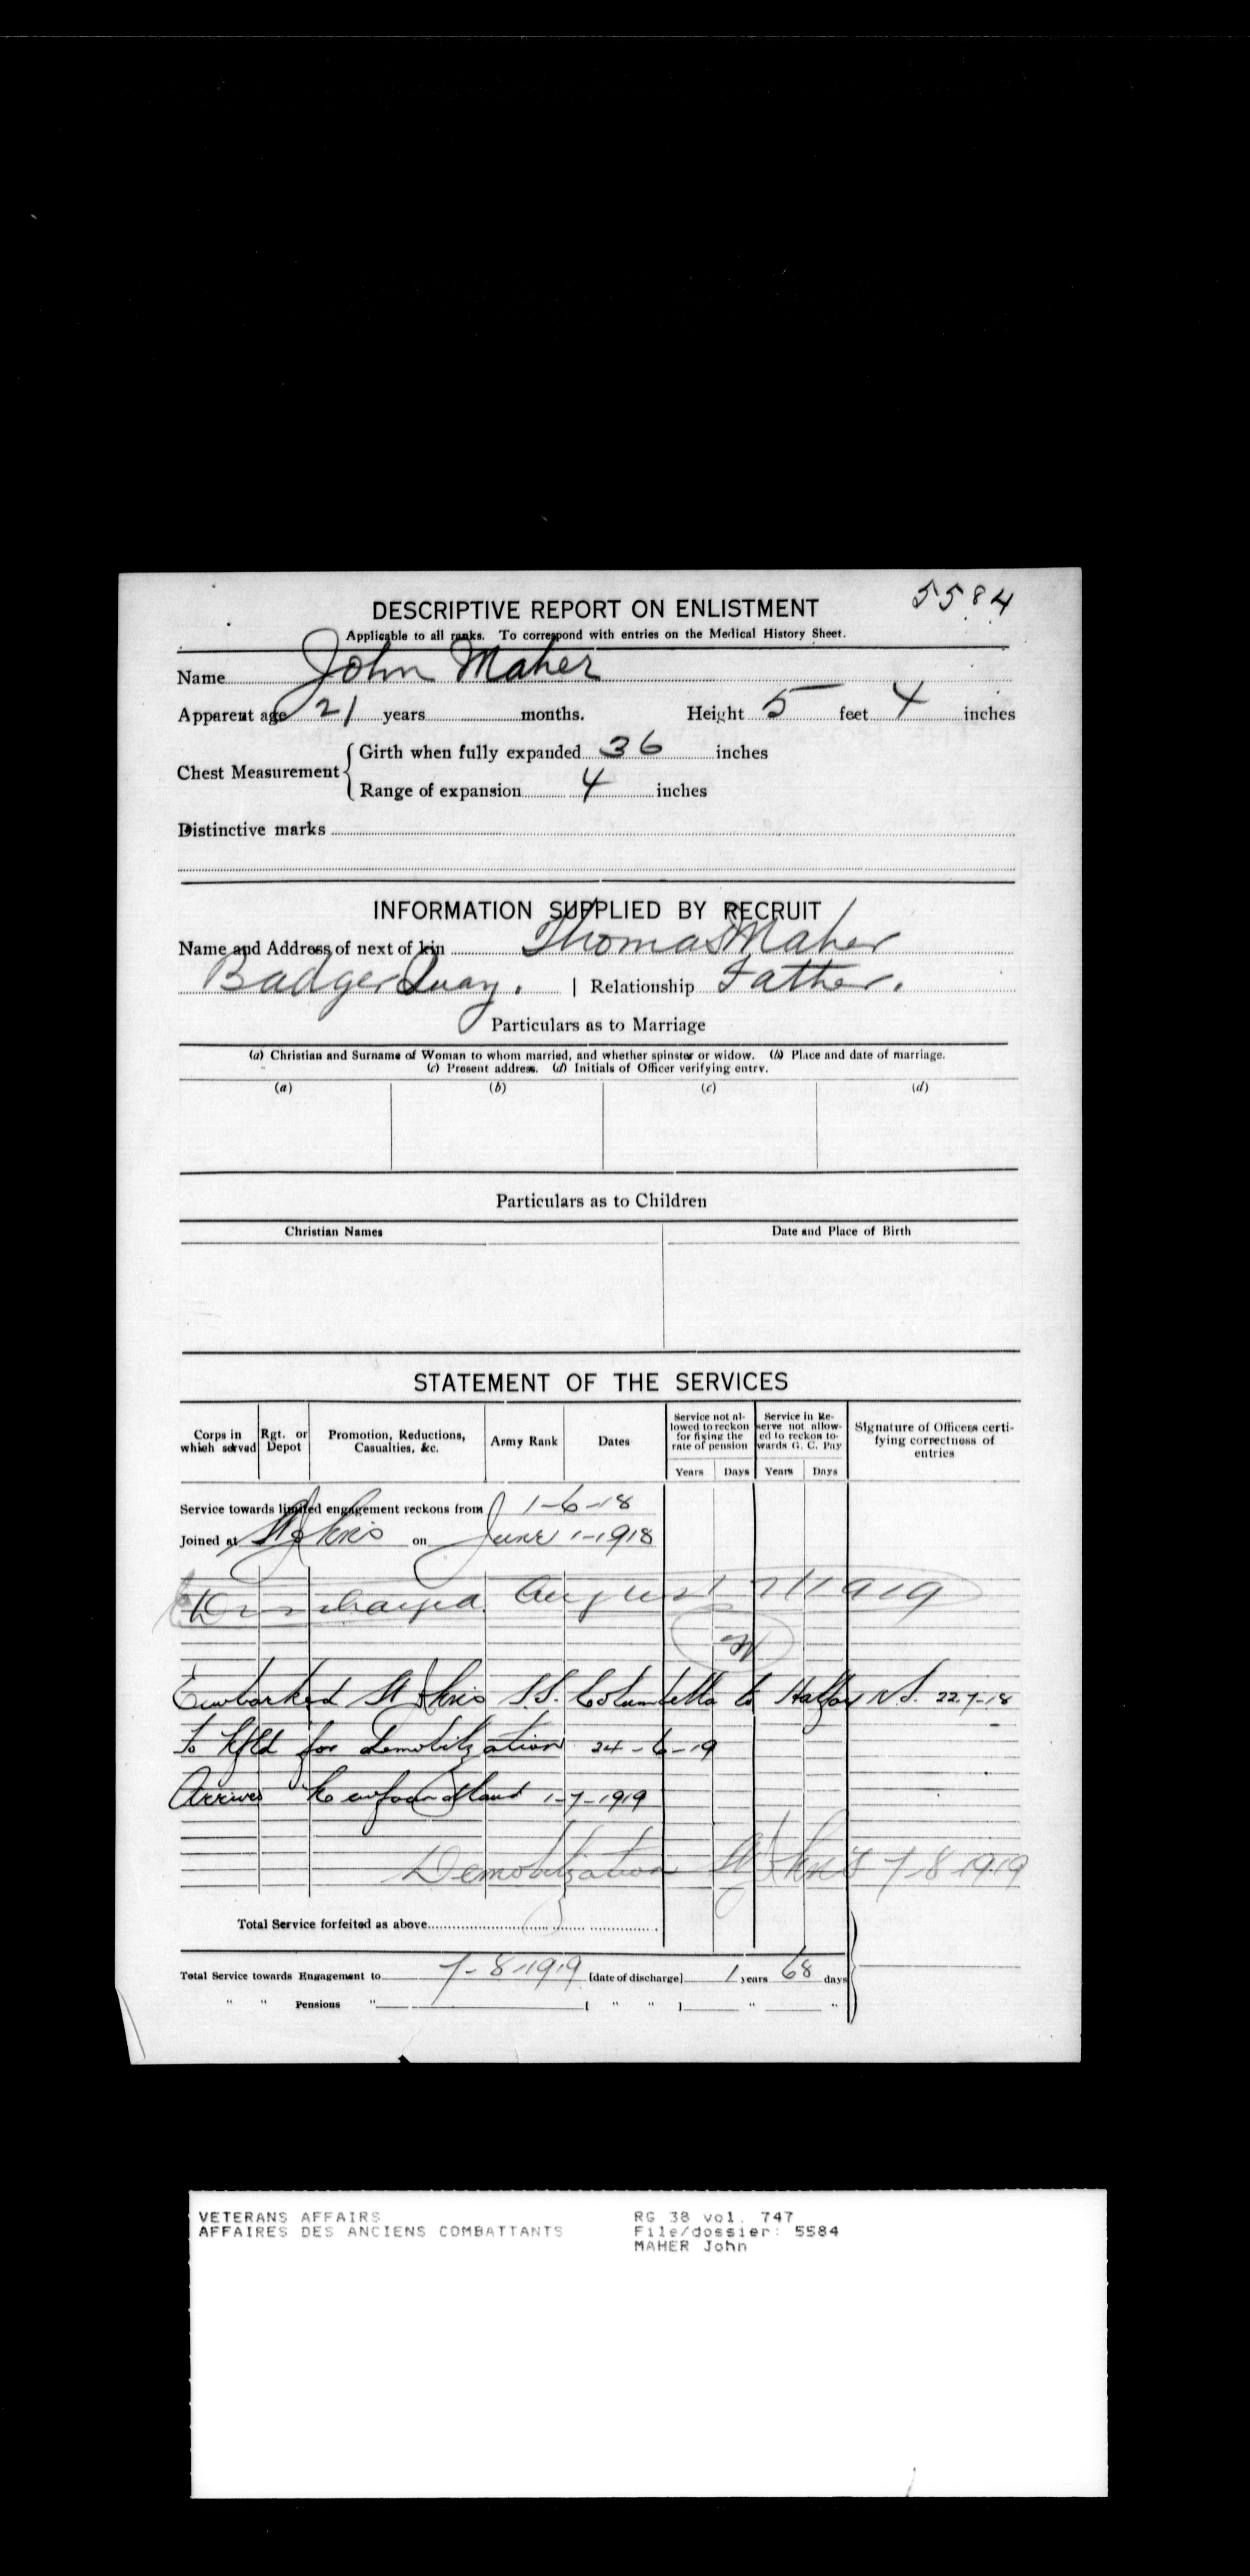 5584
DESCRIPTIVE REPORT ON ENLISTMENT
Applicable to all ranks. To correspond with entries on the Medical History Sheet.
Name John Maher
Apparent age 21 years months. Height 5 feet 4 inches
Chest Measurement { Girth when fully expanded 36 inches
Range of expansion 4 inches
Distinctive marks
INFORMATION SUPPLIED BY RECRUIT
Name and Address of next of kin Thomas Maher
Badger Quay. | Relationship Father.
Particulars as to Marriage
(a) Christian and Surname of Woman to whom married, and whether spinster or widow. (b) Place and date of marriage.
(c) Present address. (d) Initials of Officer verifying entry.
(a) (b) (c) (d)
Particulars as to Children
Christian Names Date and Place of Birth
STATEMENT OF THE SERVICES
Corps in which served Rgt. or Depot Promotion, Reductions, Casualties, &c. Army Rank Dates Service not allowed to reckon for fixing the rate of pension Service in Reserve not allowed to reckon towards G. C. Pay Signature of Officers certifying correctness of entries
Years Days Years Days
Service towards limited engagement reckons from 1-6-18
Joined at St Johns on June 1-1918
Discharged August 7 1919
Embarked St Johns S.S. Columbella to Halifax N.S. 22-7-18
To Nfld for demobilization 24-6-19
Arrived Newfoundland 1-7-1919
Demobilization St Johns 7-8-1919
Total Service forfeited as above
Total Service towards Engagement to 7-8-1919 [date of discharge] 1 years 68 days
" " Pensions " [ " " ] " "
VETERANS AFFAIRS RG 38 vol. 747
AFFAIRES DES ANCIENS COMBATTANTS File/dossier: 5584
MAHER John